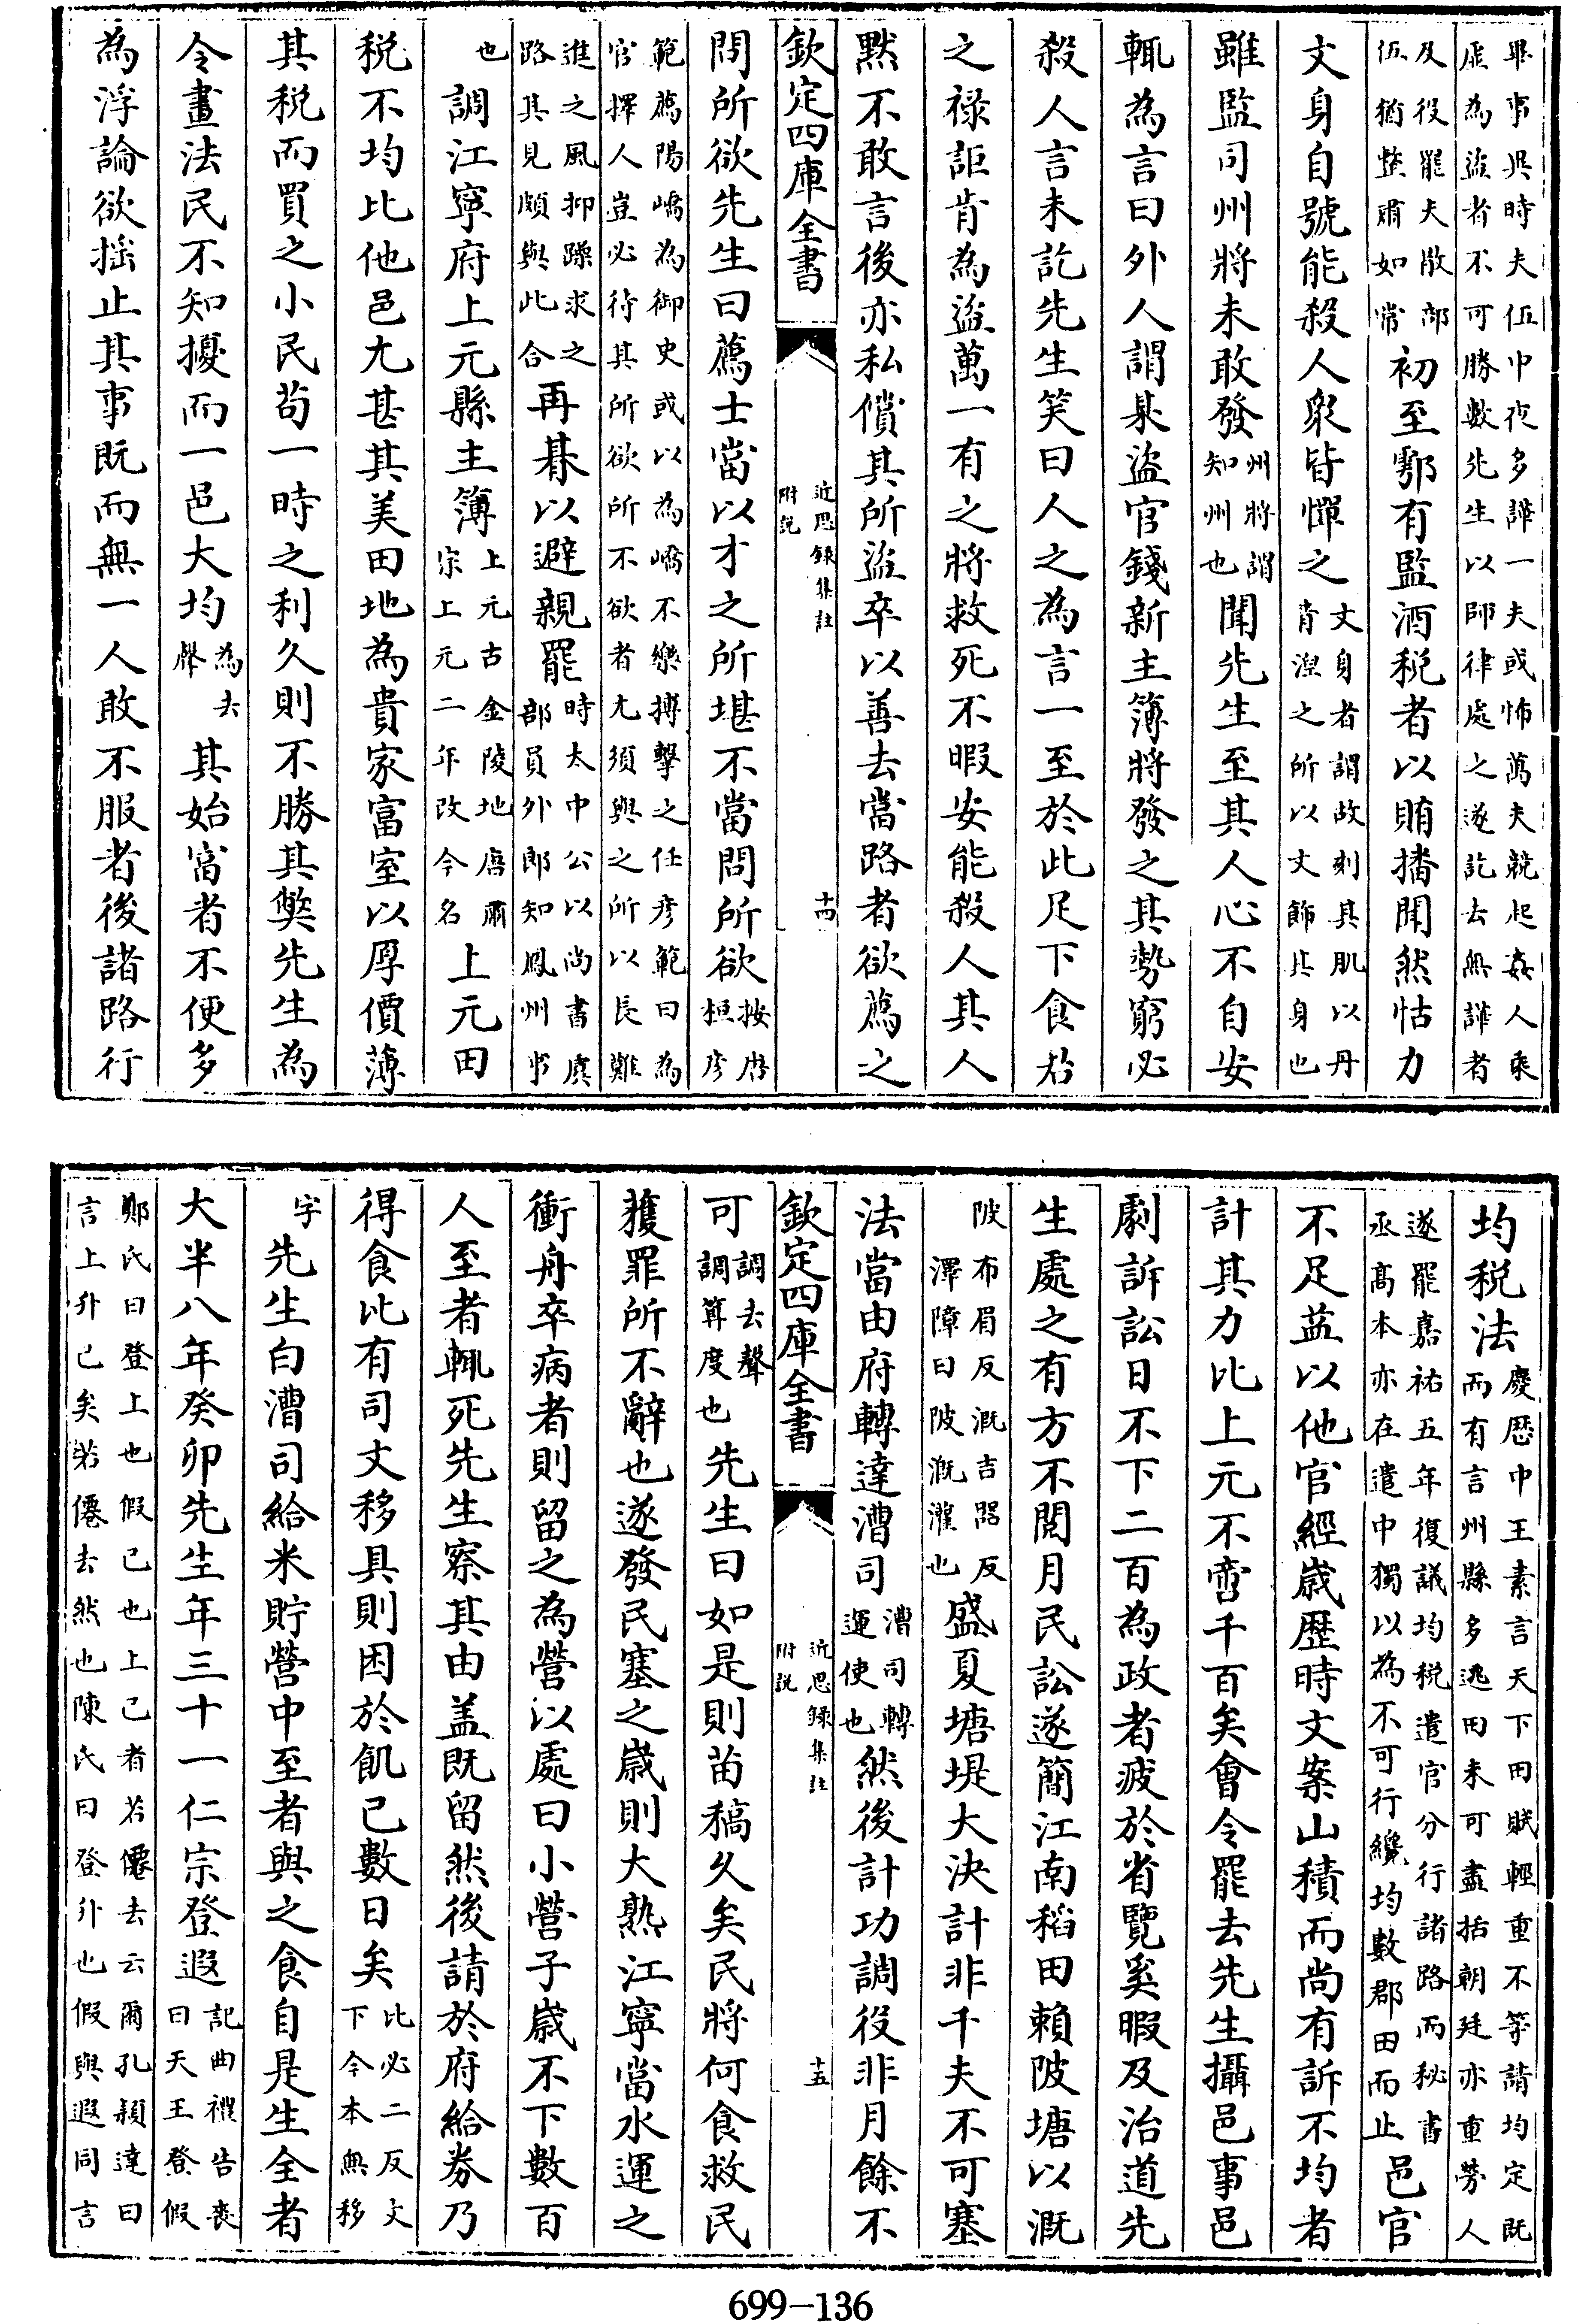 畢事呉時夫伍中夜多譁一夫或怖萬夫競起姦人乘
虛為盜者不可勝數先生以師律處之遂訖去無譁者
及役罷夫散部伍猶整肅如常初至鄠有監酒税者以賄播聞然怙力
文身自號能殺人衆皆憚之文身者謂故刺其肌以丹青湼之所以文飾其身也
雖監司州將未敢發州將謂知州也聞先生至其人心不自安
輒為言曰外人謂某盜官錢新主簿將發之其勢窮必
殺人言未訖先生笑曰人之為言一至於此足下食君
之禄詎肯為盜萬一有之將救死不暇安能殺人其人
默不敢言後亦私償其所盜卒以善去當路者欲薦之
欽定四庫全書
近思録集註
附說
十四
問所欲先生曰薦士當以才之所堪不當問所欲按唐桓彦
範薦陽嶠為御史或以為嶠不樂搏擊之任彦範曰為
官擇人豈必待其所欲所不欲者尤須與之所以長難
進之風抑躁求之路其見頗與此合再朞以避親罷時太中公以尚書虞部員外郎知鳳州事
也調江寧府上元縣主簿上元古金陵地唐肅宗上元二年改今名上元田
税不均比他邑尤甚其美田地為貴家富室以厚價薄
其税而買之小民茍一時之利久則不勝其弊先生為
令畫法民不知擾而一邑大均為去聲其始富者不便多
為浮論欲揺止其事既而無一人敢不服者後諸路行
均税法慶厯中王素言天下田賦輕重不等請均定既而有言州縣多逃田未可盡括朝廷亦重勞人
遂罷嘉祐五年復議均税遣官分行諸路而秘書丞髙本亦在遣中獨以為不可行纔均數郡田而止邑官
不足葢以他官經歲歴時文案山積而尚有訴不均者
計其力比上元不啻千百矣會令罷去先生攝邑事邑
劇訴訟日不下二百為政者疲於省覽奚暇及治道先
生處之有方不閱月民訟遂簡江南稻田賴陂塘以溉
陂布眉反溉吉器反澤障曰陂溉灌也盛夏塘堤大決計非千夫不可塞
法當由府轉達漕司漕司轉運使也然後計功調役非月餘不
欽定四庫全書
近思録集註
附說
十五
可調去聲調算度也先生曰如是則苗稿久矣民將何食救民
獲罪所不辭也遂發民塞之歲則大熟江寧當水運之
衝舟卒病者則留之為營以處曰小營子歲不下數百
人至者輒死先生察其由盖既留然後請於府給券乃
得食比有司文移具則困於飢已數日矣比必二反文下今本無移
字先生白漕司給米貯營中至者與之食自是生全者
大半八年癸卯先生年三十一仁宗登遐記曲禮告喪曰天王登假
鄭氏曰登上也假已也上已者若僊去云爾孔穎達曰
言上升已矣若僊去然也陳氏曰登升也假與遐同言
699-136